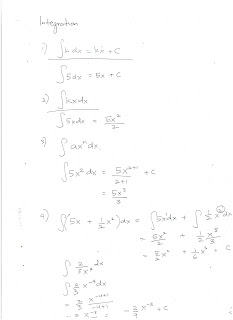 Integration
1) ∫k dx = kx + C
∫5dx = 5x + C
2) ∫kxdx
∫5xdx = 5x²/2
3) ∫ax^n dx
∫5x² dx = 5x^(2+1)/(2+1) + C
= 5x³/3
4) ∫(5x + ½x²)dx = ∫5x dx + ∫½x² dx
= 5x²/2 + ½ x³/3
= 5/2 x² + 1/6 x³ + C
∫ 2/(3x⁴) dx
∫ 2/3 x⁻⁴ dx
= 2/3 x^(-4+1)/(-4+1)